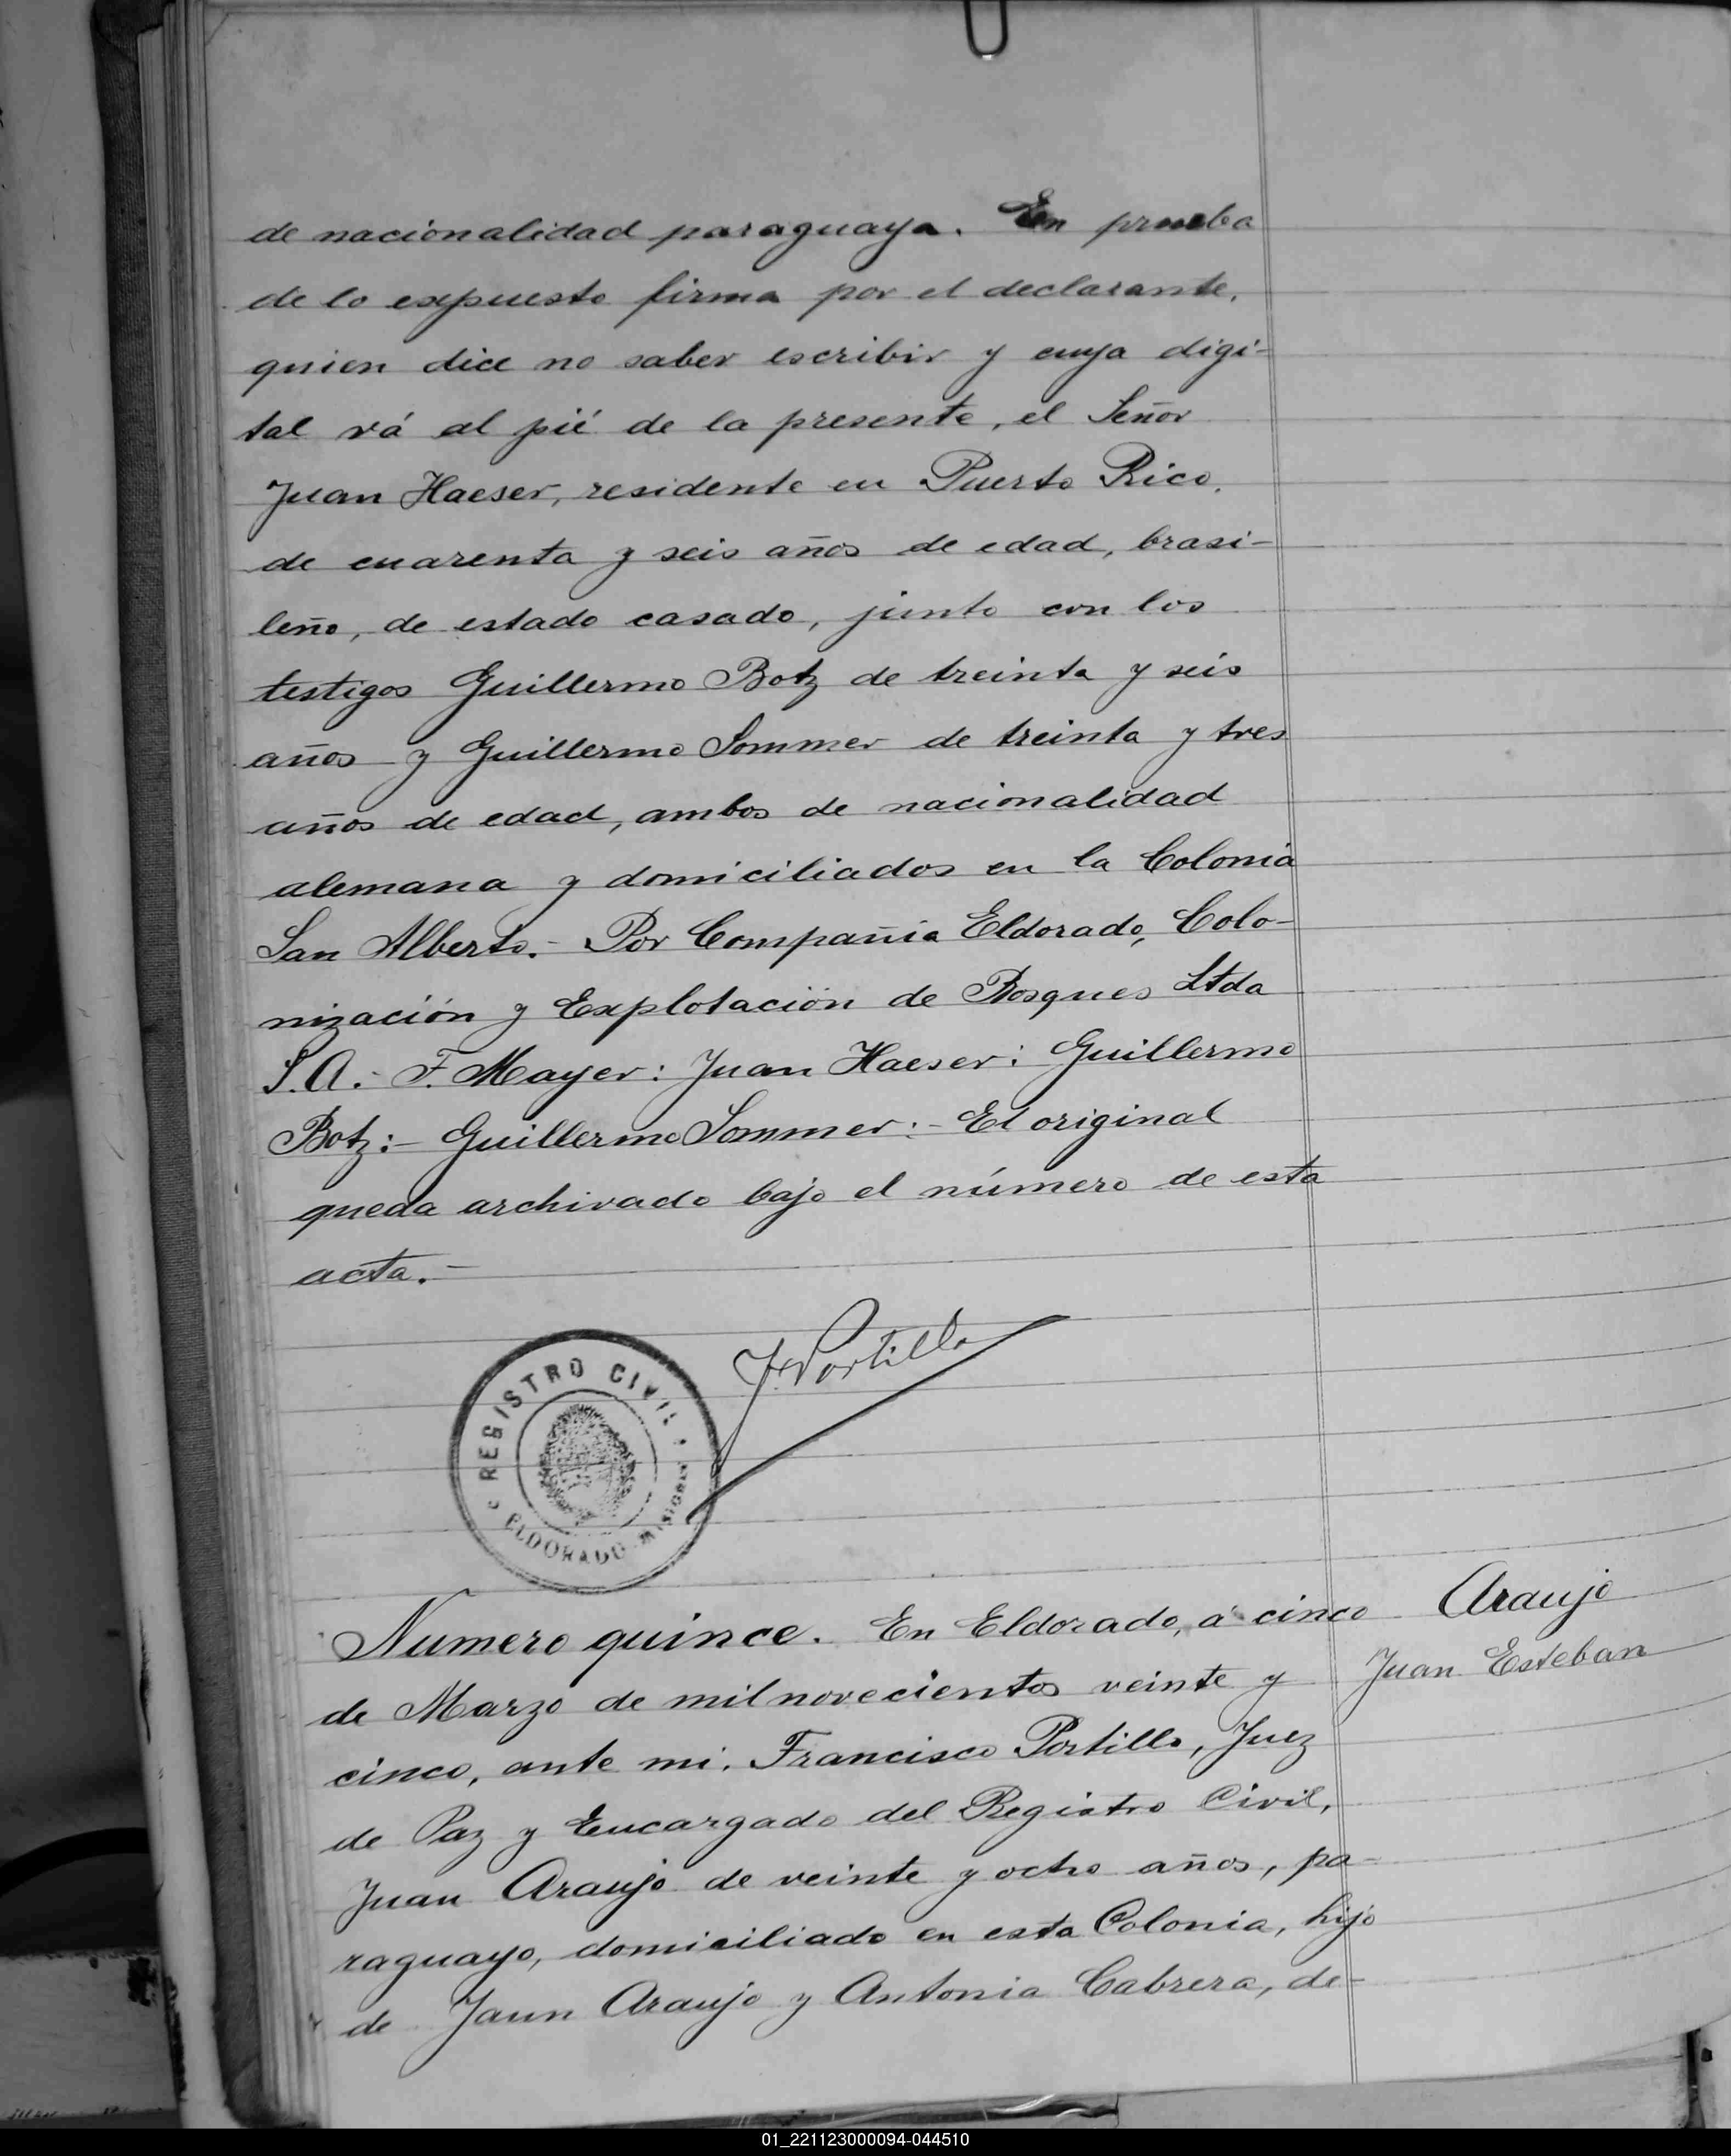 de nacionalidad paraguaya. En prueba
de lo expuesto firma por el declarante,
quien dice no saber escribir y cuya digi-
tal vá al pié de la presente, el Señor
Juan Haeser, residente en Puerto Rico,
de cuarenta y seis años de edad, brasi-
leño, de estado casado, junto con los
testigos Guillermo Botz de treinta y seis
años y Guillermo Sommer de treinta y tres
años de edad, ambos de nacionalidad
alemana y domiciliados en la Colonia
San Alberto.- Por Compañia Eldorado, Colo-
nización y Explotación de Bosques Ltda
S.A.- F. Mayer: Juan Haeser: Guillermo
Botz:- Guillermo Sommer:- El original
queda archivado bajo el número de esta
acta.-
F. Portillo
REGISTRO CIVIL
ELDORADO MISIONES
Numero quince. En Eldorado, á cinco
Araujo
Juan Esteban
de Marzo de mil novecientos veinte y
cinco, ante mi, Francisco Portillo, Juez
de Paz y Encargado del Registro Civil,
Juan Araujo de veinte y ocho años, pa-
raguayo, domiciliado en esta Colonia, hijo
de Jaun Araujo y Antonia Cabrera, de-
01_221123000094-044510